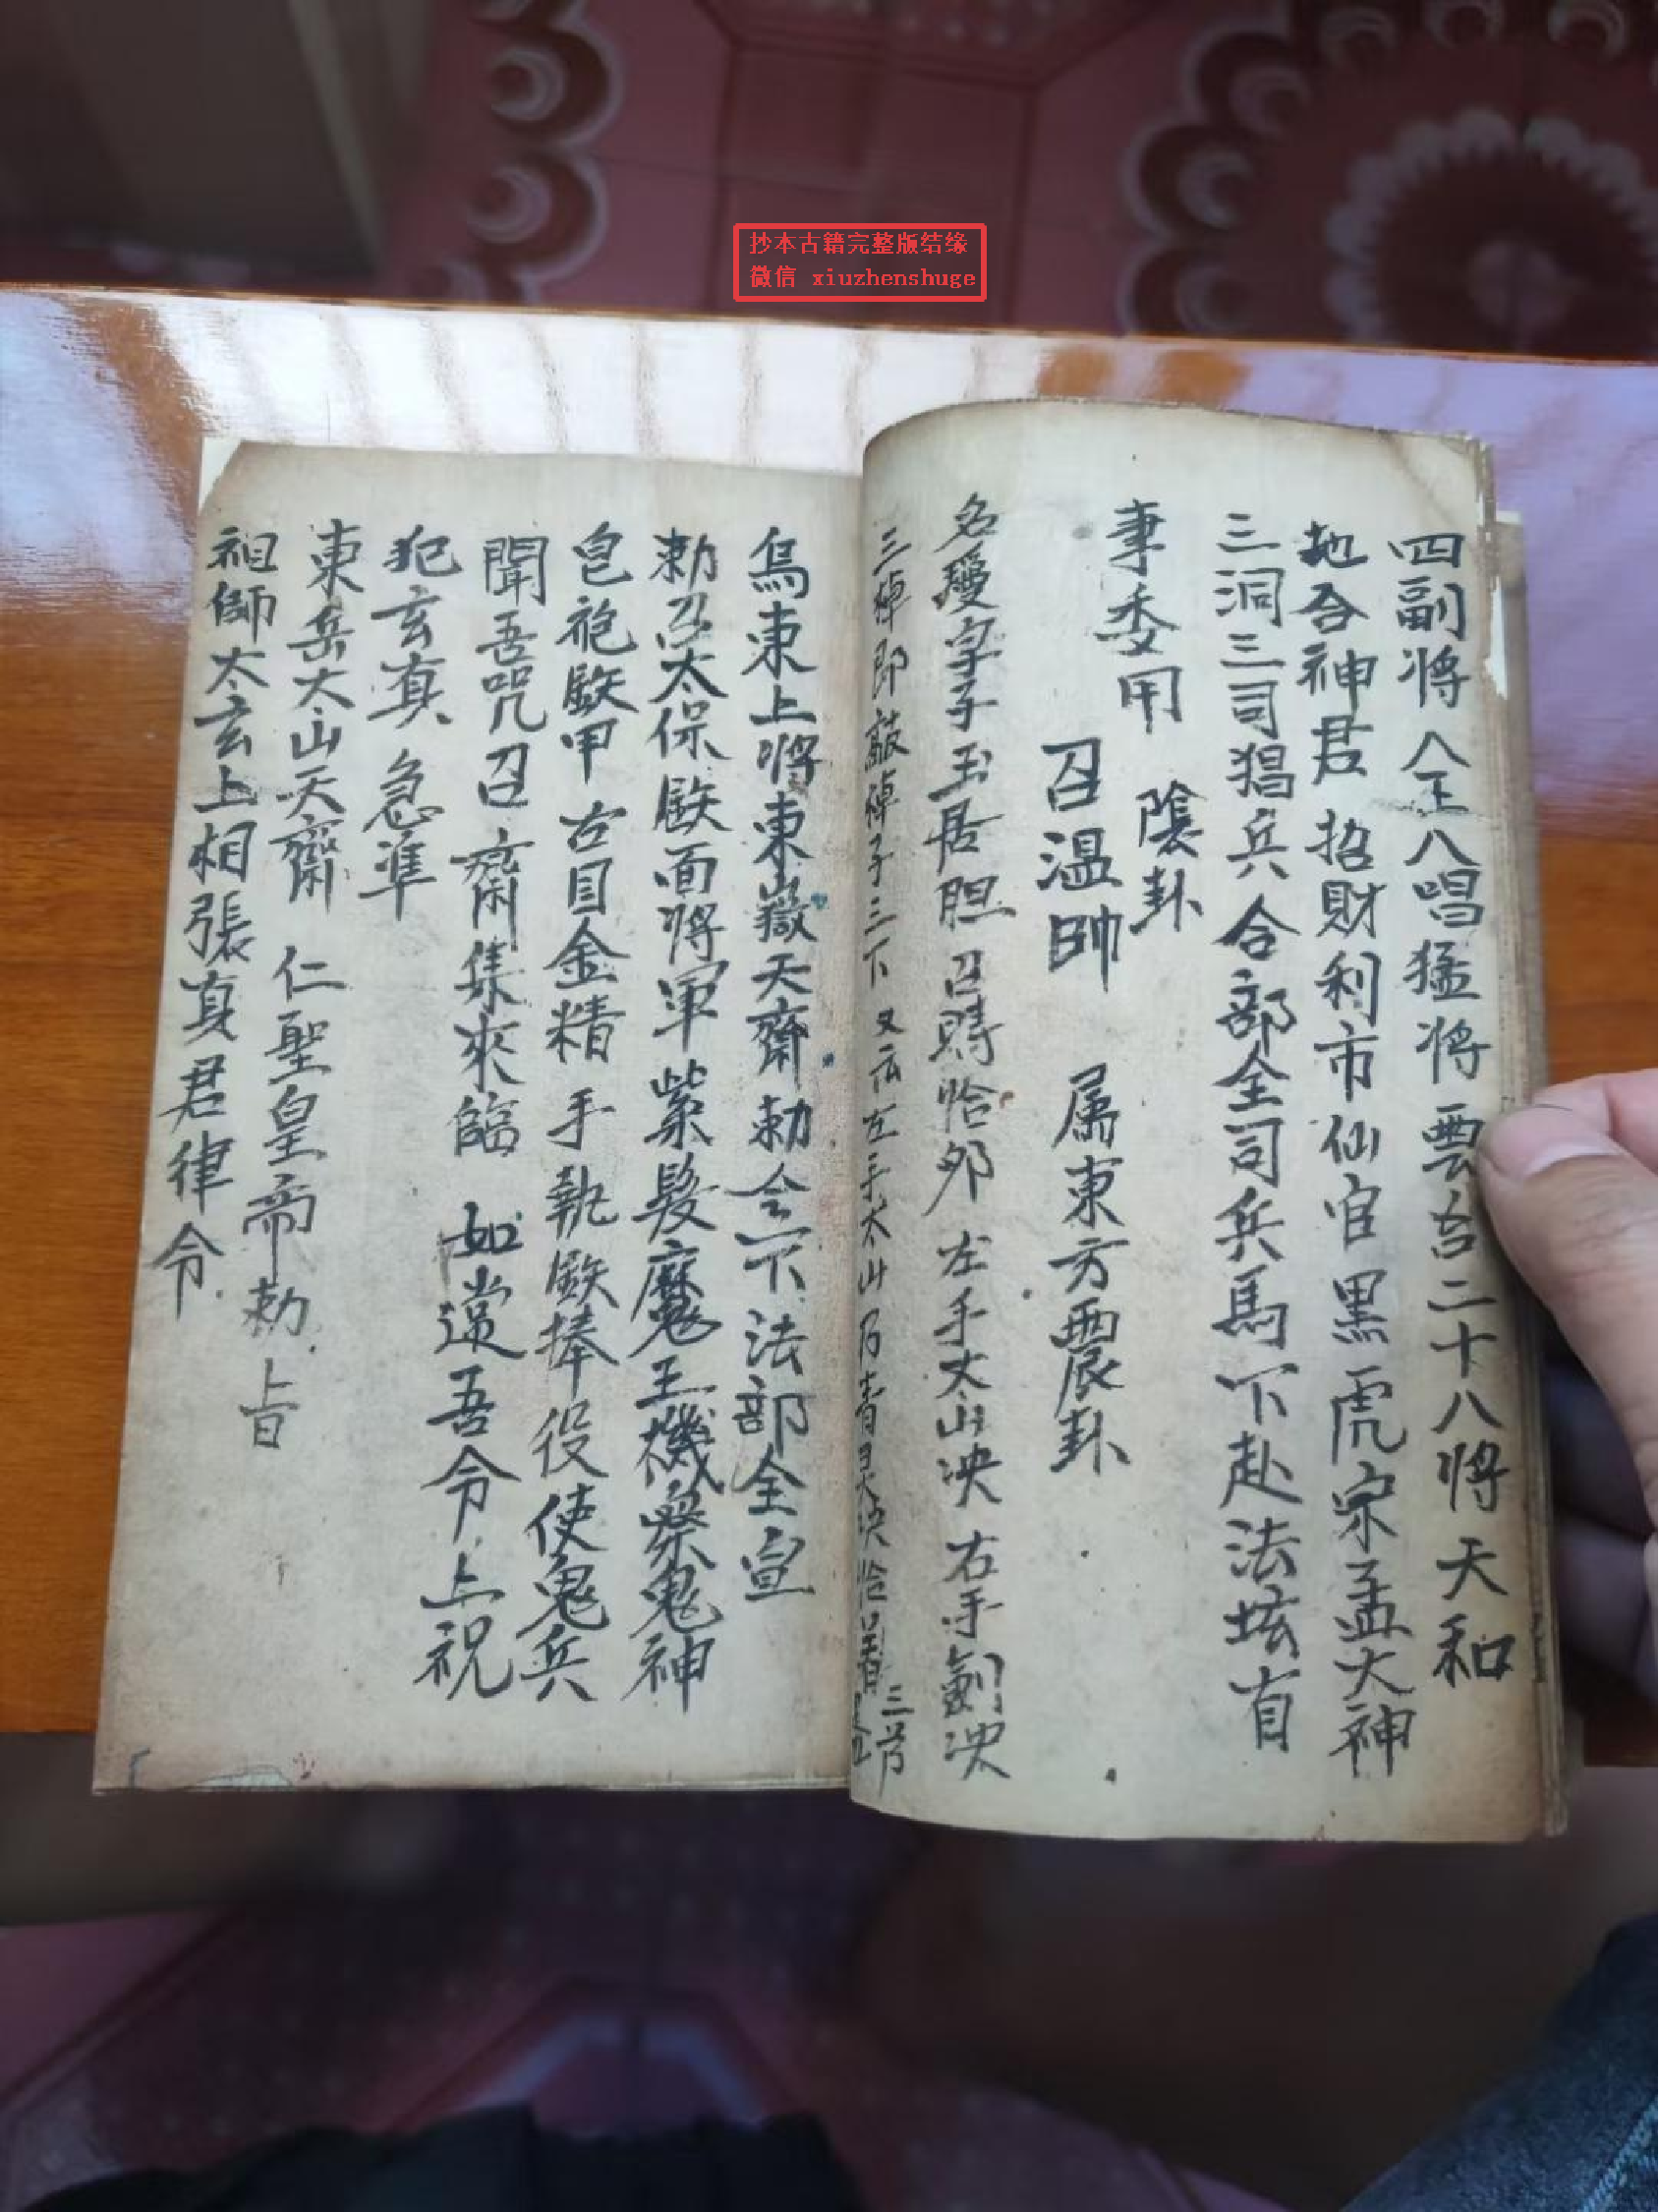 抄本古籍完整版结缘
微信 xiuzhenshuge
四副将八王八唱猛将雲台二十八将天和
地合神君招財利市仙官黑虎宗孟大神
三洞三司猖兵合部全司兵馬下赴法坛有
事委用 陰卦
召溫帥 属東方震卦
名瓊字子玉居胆召時恰夘左手太山决右手劍决
三掉即敲掉子三下又云左手太山乃青
三首
烏東上将東嶽天齋勅令下法部全宣
勅召太保䥫面将軍紫髮魔王機察鬼神
皂袍䥫甲古目金精手執䥫捧役使鬼兵
聞吾咒召齋集來臨如違吾令上祝
犯玄真急準
東岳太山天齋仁聖皇帝勅旨
祖師太玄上相張真君律令